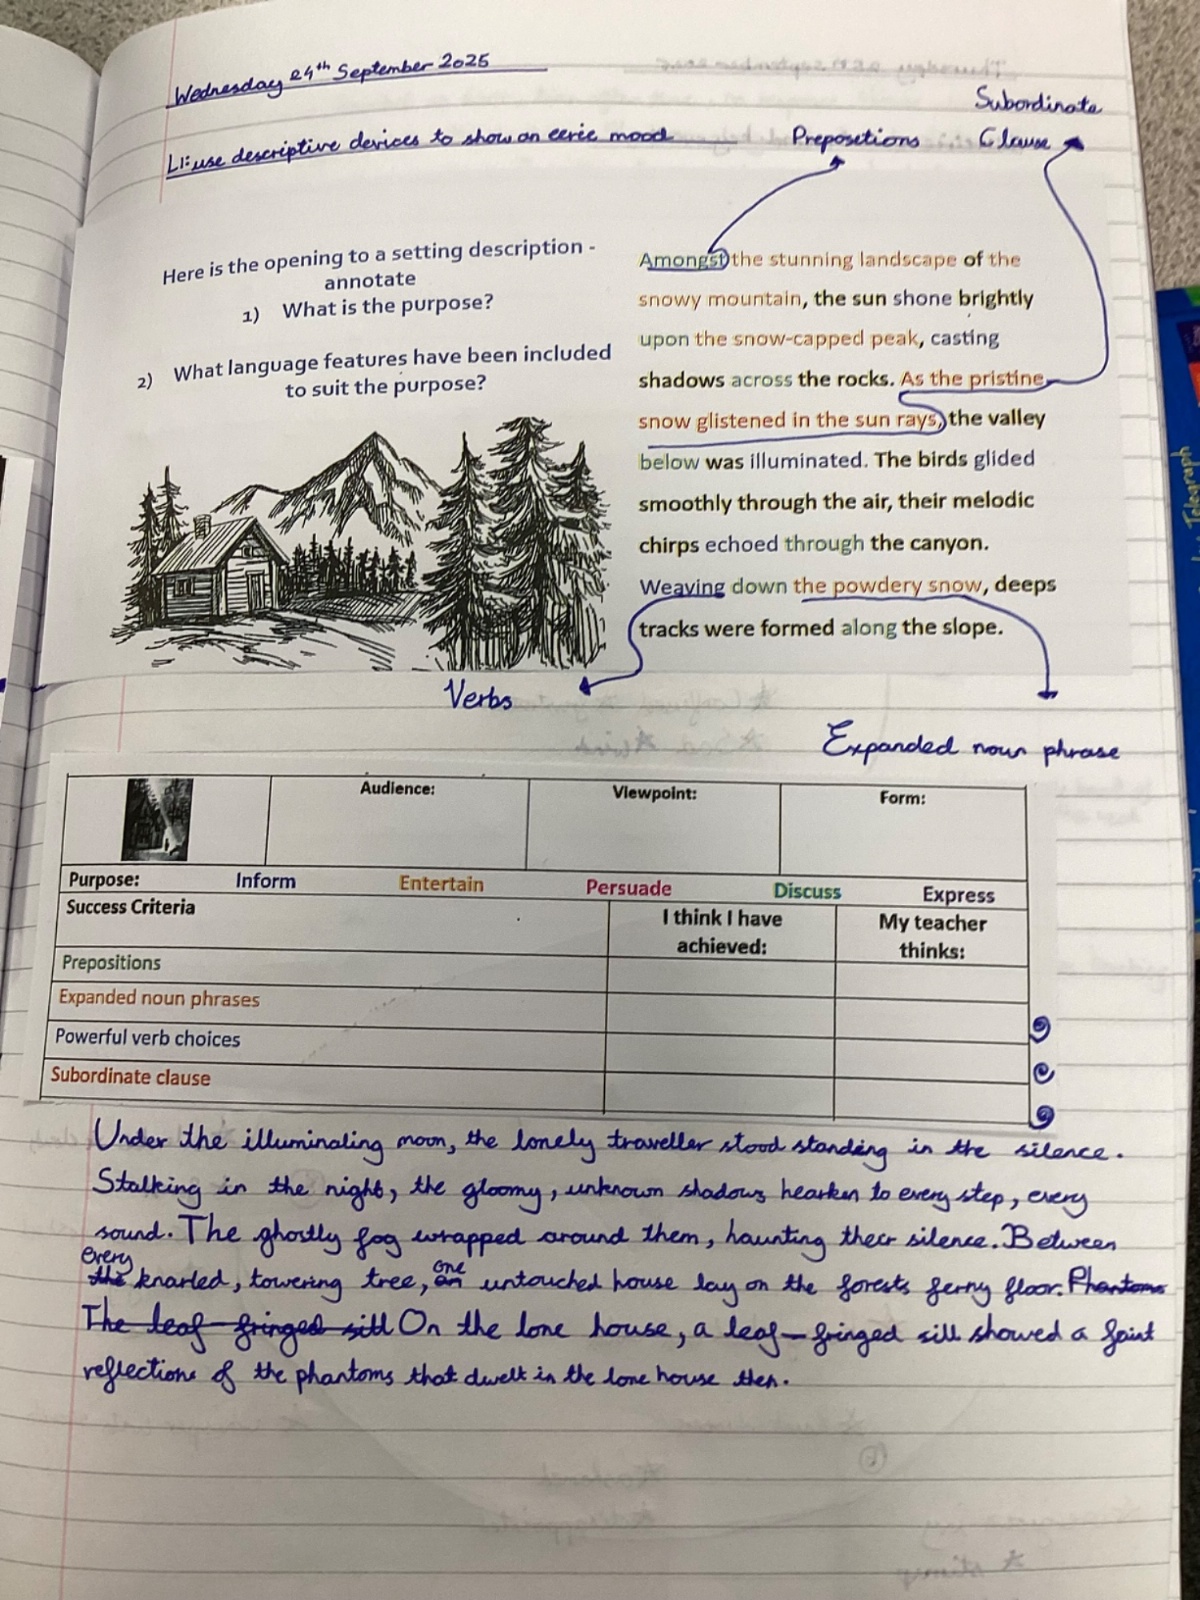 Wednesday 24th September 2025
LI: use descriptive devices to show an eerie mood
Prepositions
Subordinate
Clause
Here is the opening to a setting description -
annotate
1) What is the purpose?
2) What language features have been included
to suit the purpose?
Amongst the stunning landscape of the
snowy mountain, the sun shone brightly
upon the snow-capped peak, casting
shadows across the rocks. As the pristine
snow glistened in the sun rays, the valley
below was illuminated. The birds glided
smoothly through the air, their melodic
chirps echoed through the canyon.
Weaving down the powdery snow, deeps
tracks were formed along the slope.
Verbs
Expanded noun phrase
Audience:
Viewpoint:
Form:
Purpose: Inform Entertain Persuade Discuss Express
Success Criteria
I think I have
achieved:
My teacher
thinks:
Prepositions
Expanded noun phrases
Powerful verb choices
Subordinate clause
Under the illuminating moon, the lonely traveller stood standing in the silence.
Stalking in the night, the gloomy, unknown shadows hearken to every step, every
sound. The ghostly fog wrapped around them, haunting their silence. Between
every
the knarled, towering tree, one untouched house lay on the forests ferny floor. Phantoms
The leaf-fringed sill On the lone house, a leaf-fringed sill showed a faint
reflections of the phantoms that dwelt in the lone house then.
Telegraph